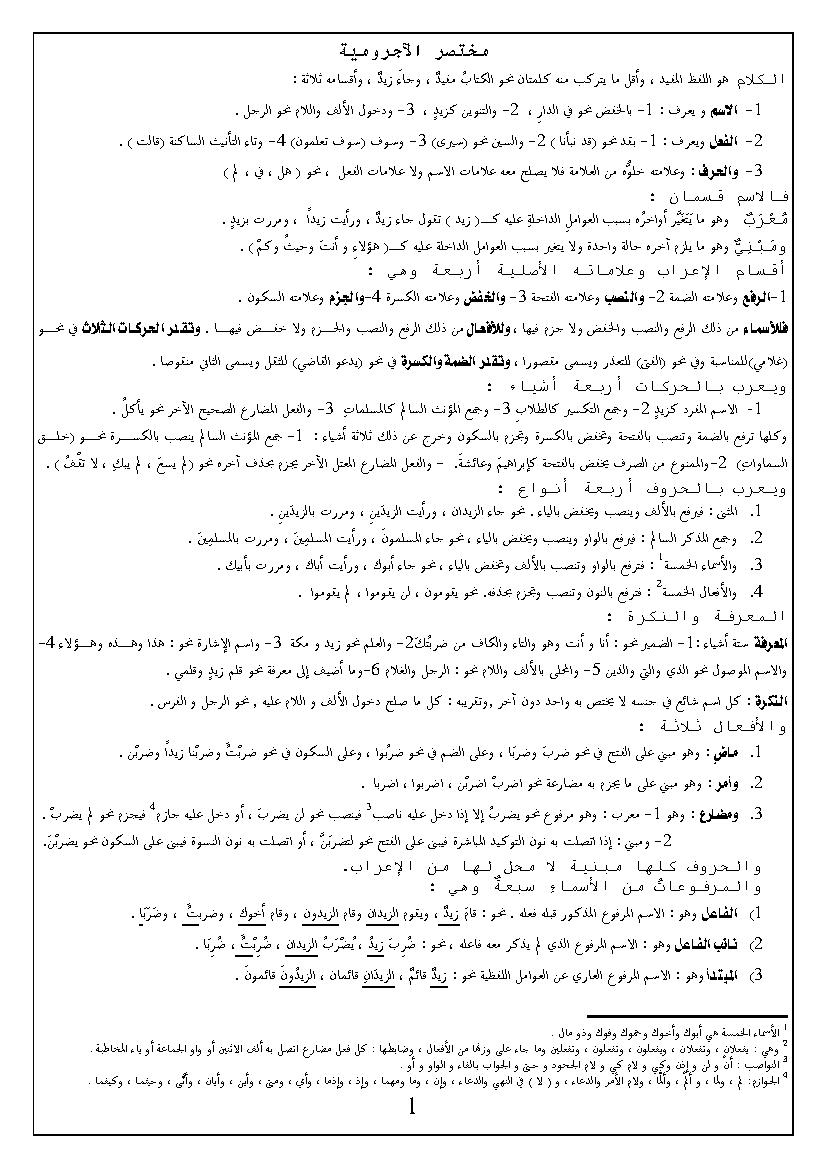 مختصر الآجرومية
الـكلام هو اللفظ المفيد ، وأقل ما يتركب منه كلمتان نحو الكتابُ مفيدٌ ، وجاءَ زيدٌ ، وأقسامه ثلاثة :
1- الاسم و يعرف : 1- بالخفض نحو في الدارِ ، 2- والتنوين كزيدٍ ، 3- ودخول الألف واللام نحو الرجل .
2- الفعل ويعرف : 1- بقد نحو (قد نبأنا ) 2- والسين نحو (سيرى) 3- وسوف (سوف تعلمون) 4- وتاء التأنيث الساكنة (قالت ) .
3- والحرف: وعلامته خلوُّه من العلامة فلا يصلح معه علامات الاسم ولا علامات الفعل ، نحو ( هل ، في ، لم )
فـالاسم قـسمان :
مُعْرَبٌ وهو ما يَتَغَيَّر أواخرُه بسبب العوامل الداخلةِ عليه كــ( زيد ) تقول جاء زيدٌ ، ورأيت زيداً ، ومررت بزيدٍ .
ومَبْنِيٌّ وهو ما يلزم آخره حالة واحدة ولا يتغير بسبب العوامل الداخلة عليه كــ( هؤلاءِ و أنتَ وحيثُ وكمْ ) .
أقسام الإعراب وعلاماته الأصلية أربعة وهي :
1-الرفع وعلامته الضمة 2- والنصب وعلامته الفتحة 3- والخفض وعلامته الكسرة 4-والجزم وعلامته السكون .
فللأسماء من ذلك الرفع والنصب والخفض ولا جزم فيها ، وللأفعال من ذلك الرفع والنصب والجـزم ولا خفـض فيهـا . وتقدر الحركات الثلاث في نحـو
(غلامي)للمناسبة وفي نحو (الفتى) للتعذر ويسمى مقصورا ، وتقدر الضمة والكسرة في نحو (يدعو القاضي) للثقل ويسمى الثاني منقوصا .
ويعرب بـالحركات أربعة أشياء :
1- الاسم المفرد كزيدٍ 2- وجمع التكسير كالطلابِ 3- وجمع المؤنث السالم كالمسلماتِ 3- والفعل المضارع الصحيح الآخر نحو يأكلُ .
وكلها ترفع بالضمة وتنصب بالفتحة وتخفض بالكسرة وتجزم بالسكون وخرج عن ذلك ثلاثة أشياء : 1- جمع المؤنث السالم ينصب بالكسـرة نحـو (خلـق
السماواتِ) 2-والممنوع من الصرف يخفض بالفتحة كإبراهيمَ وعائشةَ. - والفعل المضارع المعتل الآخر يجزم بحذف آخره نحو (لم يسعَ ، لم يبكِ ، لا تقْفُ ) .
ويعرب بـالحروف أربعة أنواع :
1. المثنى : فيرفع بالألف وينصب ويخفض بالياء . نحو جاء الزيدان ، ورأيت الزيدَينِ ، ومررت بالزيدَينِ .
2. وجمع المذكر السالم : فيرفع بالواو وينصب ويخفض بالياء ، نحو جاء المسلمونَ ، ورأيت المسلمِينَ ، ومررت بالمسلمِينَ .
3. والأسماء الخمسة1 : فترفع بالواو وتنصب بالألف وتخفض بالياء ، نحو جاء أبوك ، ورأيت أباك ، ومررت بأبيك .
4. والأفعال الخمسة2 : فترفع بالنون وتنصب وتجزم بحذفه. نحو يقومون ، لن يقوموا ، لم يقوموا .
المعرفة والنكرة :
المعرفة ستة أشياء :1- الضمير نحو : أنا و أنت وهو والتاء والكاف من ضربتُكَ2- والعلم نحو زيد و مكة 3- واسم الإشارة نحو : هذا وهــذه وهــؤلاء 4-
والاسم الموصول نحو الذي والتي والذين 5- والمحلى بالألف واللام نحو : الرجل والغلام 6-وما أضيف إلى معرفة نحو قلم زيدٍ وقلمي .
النكرة : كل اسم شائع في جنسه لا يختص به واحد دون آخر ,وتقريبه : كل ما صلح دخول الألف و اللام عليه , نحو الرجل و الفرس .
والأفعال ثلاثة :
1. ماضٍ : وهو مبني على الفتح في نحو ضربَ وضربَا ، وعلى الضم في نحو ضربُوا ، وعلى السكون في نحو ضربْتُ وضربْنا زيداً وضربْن.
2. وأمر : وهو مبني على ما يجزم به مضارعة نحو اضربْ اضربْن ، اضربوا ، اضربا .
3. ومضارع : وهو 1- معرب : وهو مرفوع نحو يضربُ إلا إذا دخل عليه ناصب3 فينصب نحو لن يضربَ ، أو دخل عليه جازم4 فيجزم نحو لم يضربْ .
2- ومبني : إذا اتصلت به نون التوكيد المباشرة فيبنى على الفتح نحو لتضربَنَّ ، أو اتصلت به نون النسوة فيبنى على السكون نحو يضربْنَ.
والحروف كلها مبنية لا محل لها من الإعراب.
والمرفوعاتُ من الأسماءِ سبعةٌ وهي :
1) الفاعل وهو : الاسم المرفوع المذكور قبله فعله . نحو : قامَ زيدٌ ، ويقوم الزيدان وقام الزيدون ، وقام أخوك ، وضربتُ ، وضَرَبَا .
2) نائب الفاعل وهو : الاسم المرفوع الذي لم يذكر معه فاعله ، نحو : ضُرِبَ زيدٌ ، يُضْرَبُ الزيدان ، ضُرِبْتُ ، ضُرِبَا .
3) المبتدأ وهو : الاسم المرفوع العاري عن العوامل اللفظية نحو : زيدٌ قائمٌ ، الزيدَانِ قائمان ، الزيدُونَ قائمونَ .
1 الأسماء الخمسة هي أبوك وأخوك وحموك وفوك وذو مال .
2 وهي : يفعلان ، وتفعلان ، ويفعلون ، وتفعلون ، وتفعلين وما جاء على وزنها من الأفعال ، وضابطها : كل فعل مضارع اتصل به ألف الاثنين أو واو الجماعة أو ياء المخاطبة .
3 النواصب : أنْ و لن و إذن وكي و لام كي و لام الجحود و حتى و الجواب بالفاء و الواو و أو .
4 الجوازم: لم ، ولما ، و ألمْ ، وألمَّا ، ولام الأمر والدعاء ، و ( لا ) في النهي والدعاء ، وإن ، وما ومهما ، وإذ ، وإذما ، وأي ، ومتى ، وأين ، وأيان ، وأنَّى ، وحيثما ، وكيفما .
1